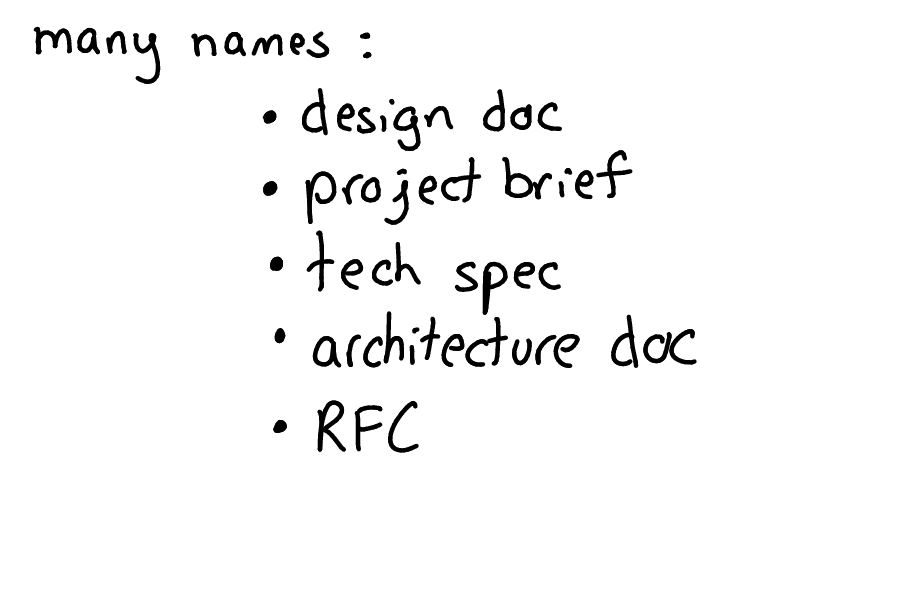 many names :
• design doc
• project brief
• tech spec
• architecture doc
• RFC